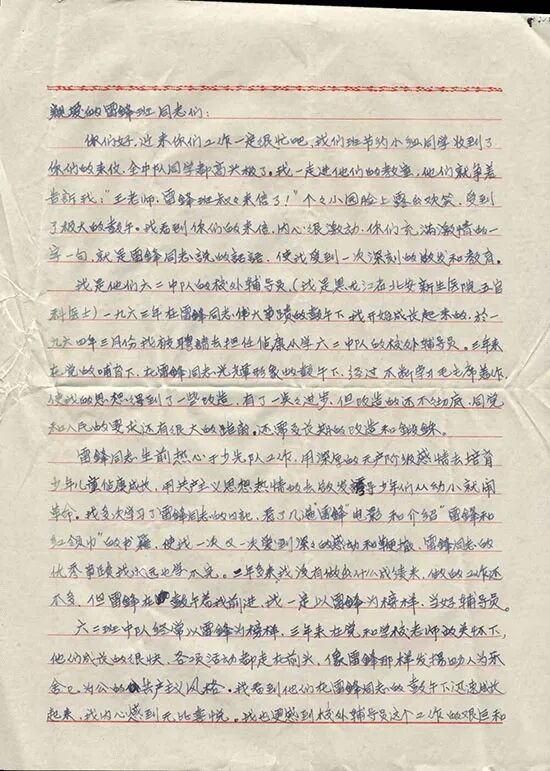 亲爱的雷锋班同志们：
你们好，近来你们工作一定很忙吧，我们班节约小组同学收到了
你们的来信，全中队同学都高兴极了。我一走进他们的教室，他们就争着
告訴我："王老师，雷锋班叔々来信了！"个々小园脸上露的欢笑，受到
了极大的鼓午。我看到你们的来信，内心很激动，你们充滿激情的一
字一句，就是雷鋒同志說的話語，使我受到一次深刻的啟发和教育。
我是他们六二中队的校外辅导员，（我是黑龙江省北安新生医院五官
科医士）一九六三年在雷锋同志伟大事蹟的鼓午下，我开始成长起来的，於一
九六四年三月份我被聘請去担任健康小学六二中队的校外辅导员。三年来
在党的哺育下，在雷锋同志光辉形象的鼓午下，经过不断学习毛主席著作，
使我的思想得到了一些改造，有了一奌々进步，但改造的还不彻底，同党
和人民的要求还有很大的距离。还需要长期的改造和鍛鍊。
雷锋同志生前热心于少先队工作，用深厚的无产阶级感情去培育
少年儿童健康成长，用共产主义思想热情的去啟发誘导少年们从幼小就闹
革命。我多次学习了雷锋同志的日記，看了几遍"雷锋"电影和介绍"雷锋和
红领巾"的书籍，使我一次又一次受到深々的感动和鞭撻，雷锋同志的
优秀事蹟我永远也学不完。三年多来，我没有做出什么成绩来，做的工作还
不多，但雷锋在鼓午着我前进，我一定以雷锋为榜样，当好辅导员。
六二班中队经常以雷锋为榜样，三年来在党和学校老师的关怀下，
他们成长的很快，各项活动都走在前头，像雷锋那样发揚助人为乐
舍己为公的共产主义风格。我看到他们在雷锋同志的鼓午下迅速成长
起来，我内心感到无比喜悦。我也更感到校外辅导员这个工作的艰巨和